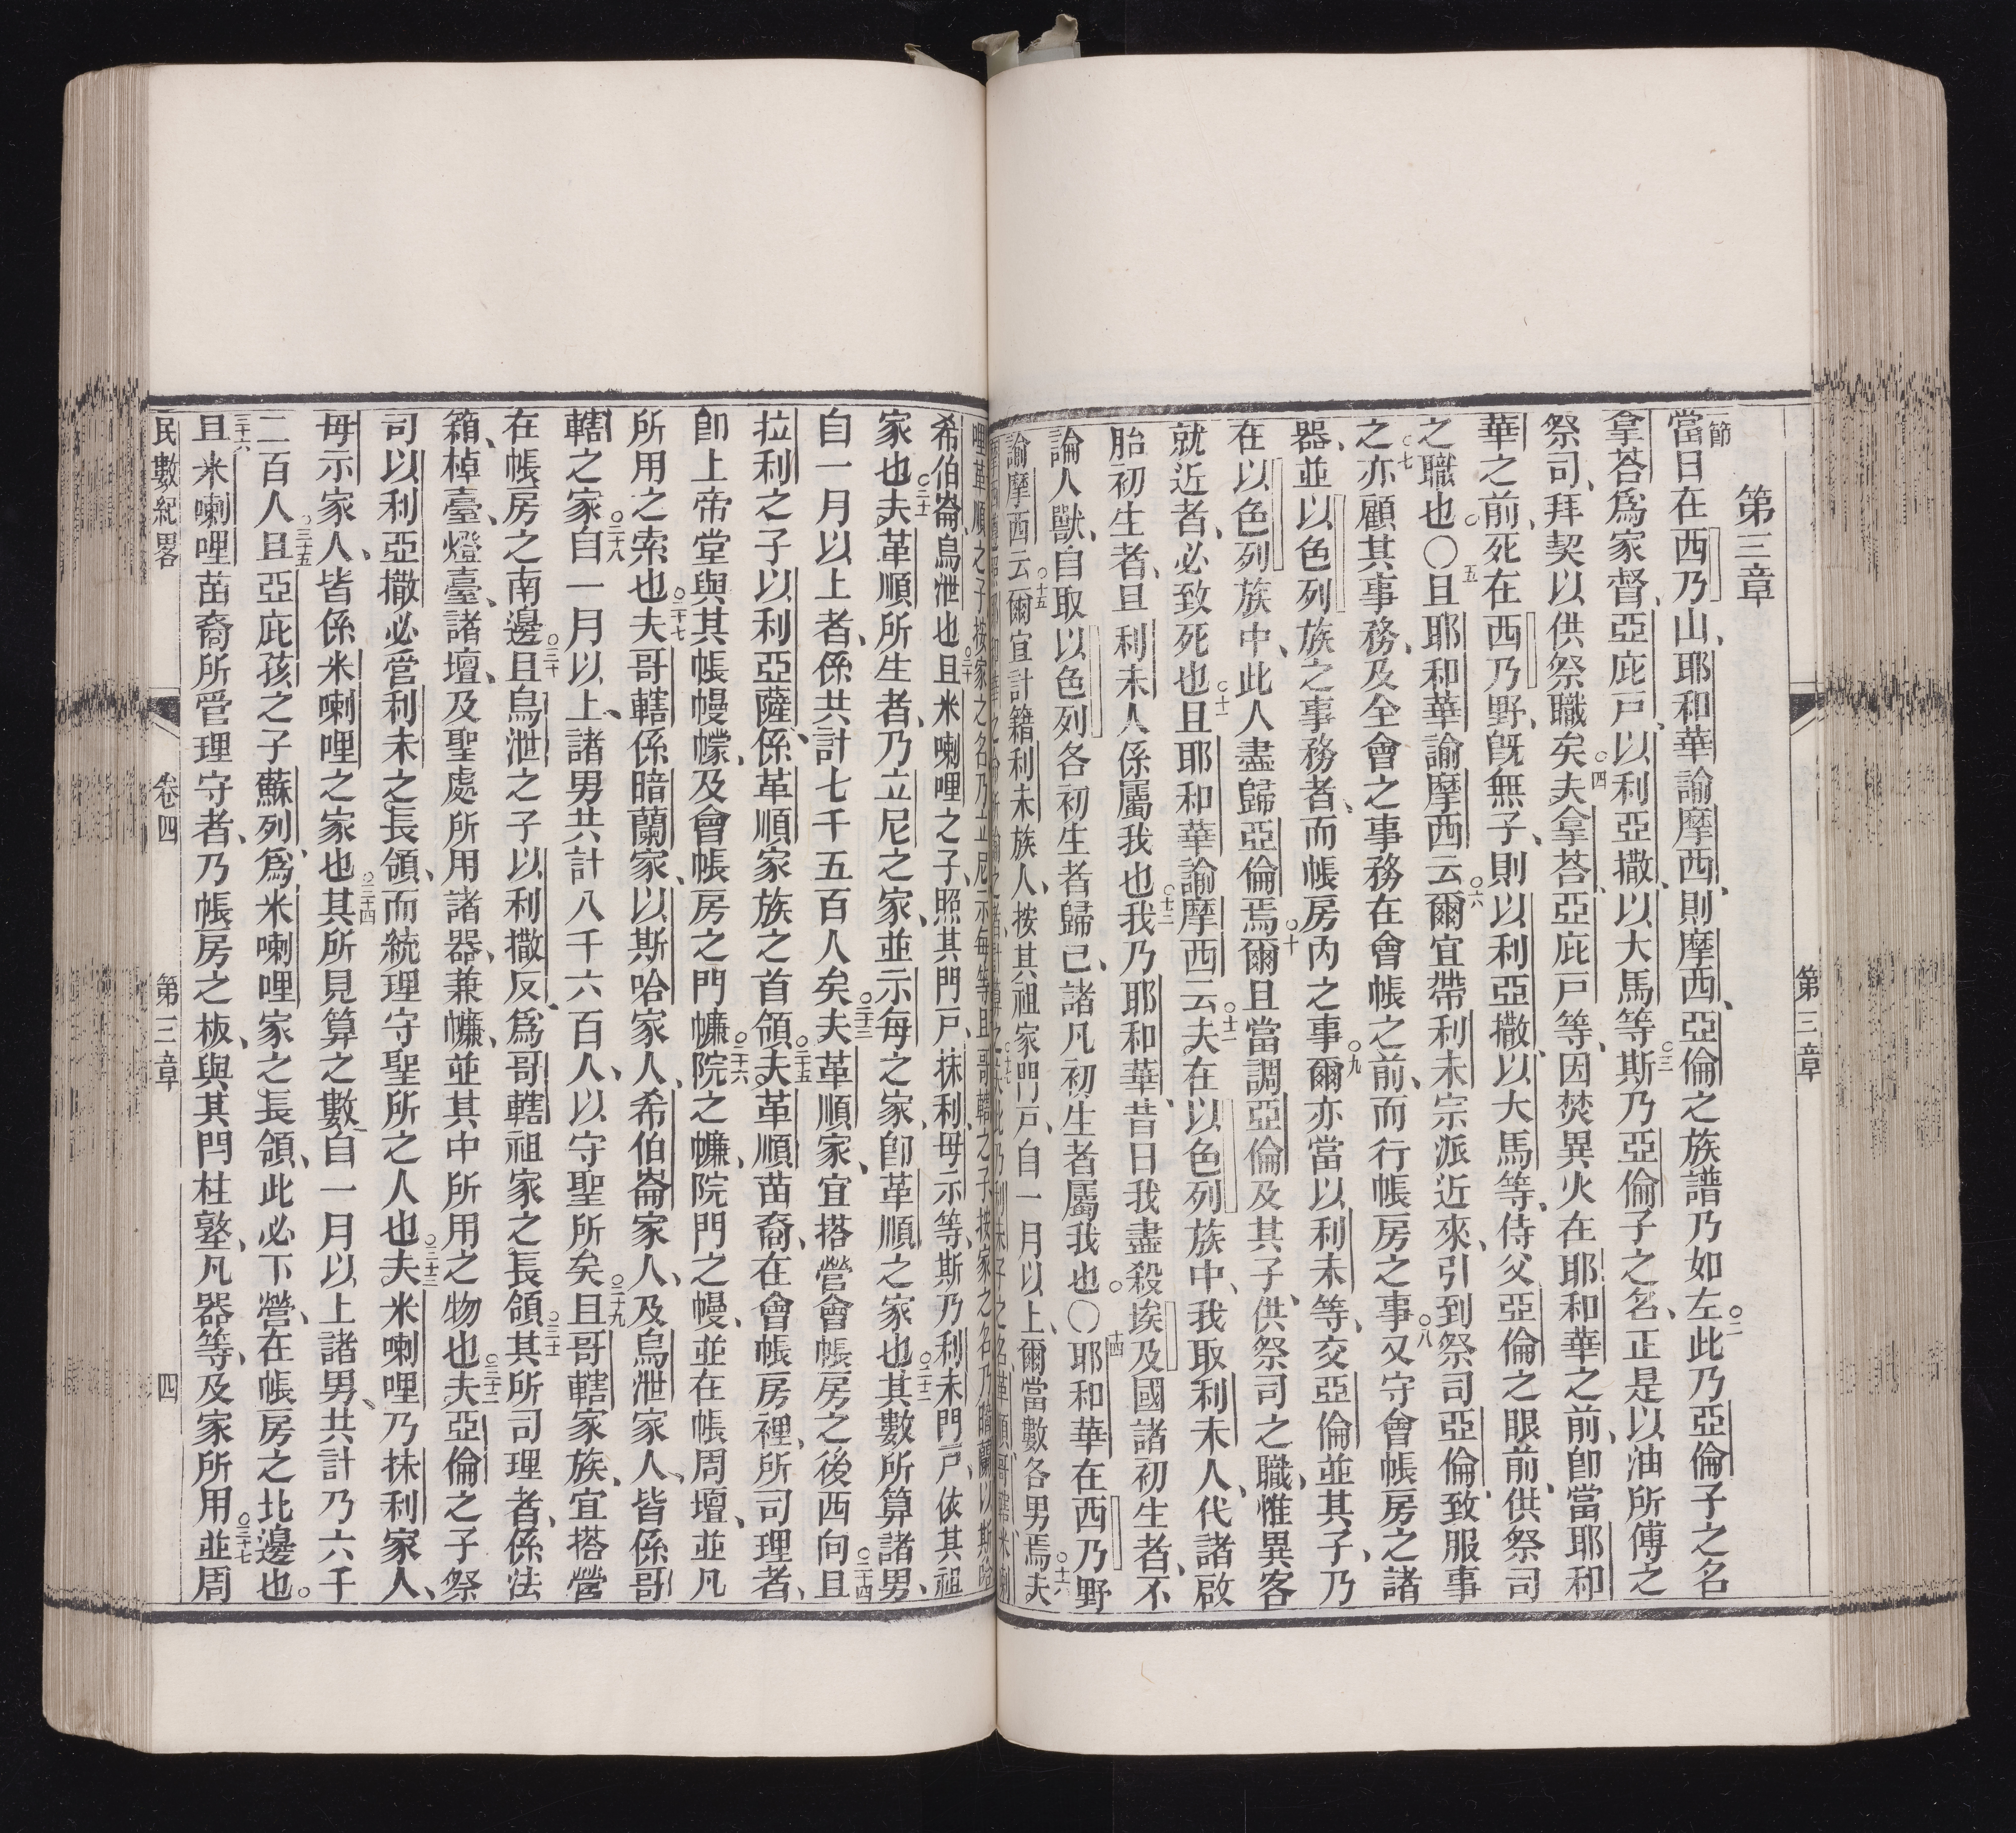 第三章
第三章
一節當日在西乃山、耶和華諭摩西、則摩西、亞倫之族譜乃如左○二此乃亞倫子之名
拿荅爲家督、亞庇戶、以利亞撒、以大馬等斯○三乃亞倫子之名、正是以油所傅之
祭司、拜契以供祭職矣○四夫拿荅、亞庇戶等、因焚異火在耶和華之前、卽當耶和
華之前、死在西乃野、旣無子、則以利亞撒、以大馬等、侍父亞倫之眼前、供祭司
之職也○五且耶和華諭摩西云○六爾宜帶利未宗派近來、引到祭司亞倫、致服事
之○七亦顧其事務、及全會之事務在會帳之前、而行帳房之事○八又守會帳房之諸
器、並以色列族之事務者、而帳房內之事○九爾亦當以利未等、交亞倫並其子、乃
在以色列族中、此人盡歸亞倫焉○十爾且當調亞倫及其子、供祭司之職、惟異客
就近者、必致死也○十一且耶和華諭摩西云○十二夫在以色列族中、我取利未人、代諸啟
胎初生者、且利未人係屬我也○十三我乃耶和華、昔日我盡殺埃及國諸初生者、不
論人獸、自取以色列各初生者歸已、諸凡初生者屬我也○十四耶和華在西乃野
諭摩西云○十五爾宜計籍利未族人、按其祖家門戶、自一月以上、爾當數各男焉○十六夫
希伯崙、烏泄也○二十且米喇哩之子、照其門戶、抹利、母示等、斯乃利未門戶、依其祖
家也○二十一夫革順所生者、乃立尼之家、並示每之家、卽革順之家也○二十二其數所算諸男、
自一月以上者、係共計七千五百人矣○二十三夫革順家、宜搭營會帳房之後西向○二十四且
拉利之子以利亞薩、係革順家族之首領○二十五夫革順苗裔、在會帳房裡、所司理者、
卽上帝堂與其帳幔幪、及會帳房之門㡘○二十六院之㡘、院門之幔、並在帳周壇、並凡
所用之索也○二十七夫哥轄係暗蘭家、以斯哈家人、希伯崙家人、及烏泄家人、皆係哥
轄之家○二十八自一月以上、諸男共計八千六百人、以守聖所矣○二十九且哥轄家族、宜搭營
在帳房之南邊○三十且烏泄之子以利撒反、爲哥轄祖家之長領○三十一其所司理者、係法
箱、棹臺、燈臺、諸壇、及聖處所用諸器、兼㡘、並其中所用之物也○三十二夫亞倫之子祭
司以利亞撒必管利未之長領、而統理守聖所之人也○三十三夫米喇哩乃抹利家人、
毋示家人、皆係米喇哩之家也○三十四其所見算之數、自一月以上諸男、共計乃六千
二百人○三十五且亞庇孩之子蘇列、爲米喇哩家之長領、此必下營、在帳房之北邊也。
三十六且米喇哩苗裔所管理守者、乃帳房之板、與其閂柱墪、凡器等、及家所用○三十七並周
民數紀畧 卷四 第三章 四